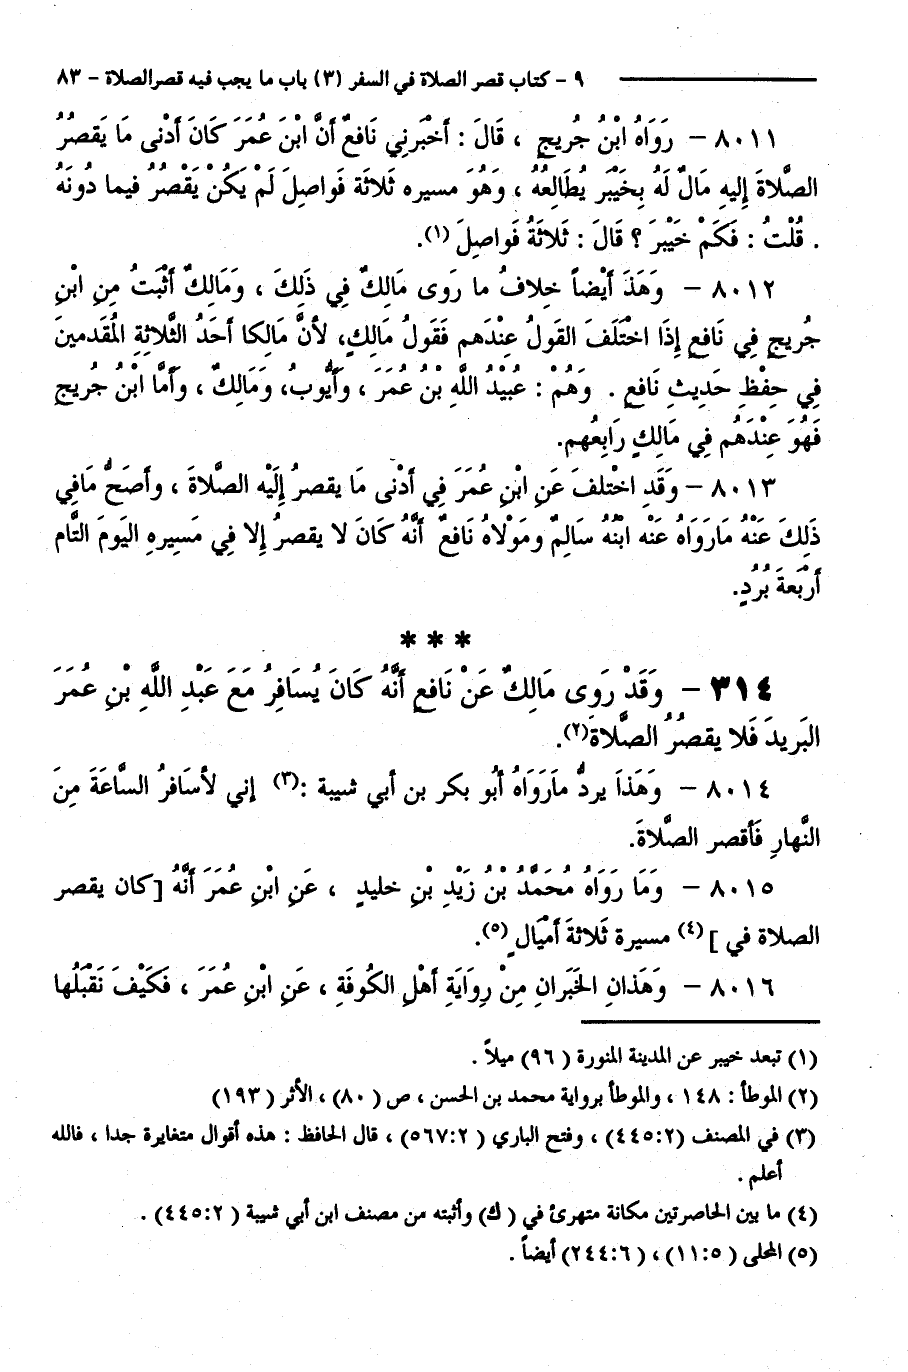 ٩ - كتاب قصر الصلاة في السفر (٣) باب ما يجب فيه قصر الصلاة - ٨٣
٨٠١١ - رَوَاهُ ابْنُ جُريجٍ ، قَالَ : أَخْبَرنِي نَافعٌ أَنَّ ابْنَ عُمَرَ كَانَ أَدْنى مَا يَقصُرُ
الصَّلاةَ إِليهِ مَالٌ لَهُ بِخَيْبَر يُطَالِعُهُ ، وَهُوَ مسيره ثَلاثَة فَواصِلَ لَمْ يَكُنْ يَقْصُرُ فيما دُونَهُ
. قُلْتُ : فَكَمْ خَيْبَرَ ؟ قَالَ : ثَلاثَةُ فَواصِلَ (١).
٨٠١٢ - وَهَذَ أَيْضاً خِلافُ ما رَوى مَالكٌ فِي ذَلِكَ ، وَمَالكٌ أَثْبَتُ مِنِ ابْنِ
جُريجٍ فِي نَافعٍ إِذَا اخْتَلَفَ القَولُ عِنْدَهم فَقَولُ مَالكٍ، لأنَّ مَالكا أَحَدُ الثَّلاثةِ المُقَدمينَ
فِي حِفْظِ حَديثِ نَافعٍ . وَهُمْ : عُبَيْدُ اللَّهِ بْنُ عُمَرَ ، وَأَيُّوب، وَمَالكٌ ، وَأَمَّا ابْنُ جُريجٍ
فَهُوَ عِنْدَهُم فِي مَالكٍ رَابِعُهم.
٨٠١٣ - وَقَدِ اخْتلفَ عَنِ ابْنِ عُمَرَ فِي أَدْنَى مَا يقصرُ إِلَيْه الصَّلاةَ ، وأصَحُّ مَافِي
ذَلِكَ عَنْهُ مَارَوَاهُ عَنْه ابْنُهُ سَالِمٌ ومَوْلاهُ نَافعٌ أَنَّهُ كَانَ لا يقصرُ إِلا فِي مَسيرهِ اليَومَ التَّام
أَرْبَعةَ بُرُدٍ.
* * *
٣١٤ - وَقَدْ رَوى مَالكٌ عَنْ نَافعٍ أَنَّهُ كَانَ يُسَافِرُ مَعَ عَبْدِ اللَّهِ بْنِ عُمَرَ
البَريدَ فَلا يقصُرُ الصَّلاة(٢).
٨٠١٤ - وَهَذَا يردُّ مَارَوَاهُ أَبُو بكر بن أبي شيبة :(٣) إني لأسَافرُ السَّاعَةَ مِنَ
النَّهارِ فَأقصر الصَّلاةَ.
٨٠١٥ - وَمَا رَوَاهُ مُحَمَّدُ بْنُ زَيْدِ بْنِ خليدٍ ، عَنِ ابْنِ عُمَرَ أَنَّهُ [كان يقصر
الصلاة في ] (٤) مسيرة ثَلاثةَ أمْيَالٍ (٥).
٨٠١٦ - وَهَذَانِ الخَبَرانِ مِنْ رِوَايَةِ أَهْلِ الكُوفَةِ ، عَنِ ابْنِ عُمَرَ ، فَكَيْفَ نَقْبَلُها
(١) تبعد خيبر عن المدينة المنورة ( ٩٦) ميلاً .
(٢) الموطأ : ١٤٨ ، والموطأ برواية محمد بن الحسن ، ص ( ٨٠) ، الأثر ( ١٩٣)
(٣) في المصنف (٤٤٥:٢) ، وفتح الباري ( ٥٦٧:٢) ، قال الحافظ : هذه أقوال متغايرة جدا ، فالله
أعلم .
(٤) ما بين الحاصرتين مكانة متهرئ في ( ك) وأثبته من مصنف ابن أبي شيبة ( ٤٤٥:٢) .
(٥) المحلى ( ١١:٥) ، ( ٢٤٤:٦) أيضاً .